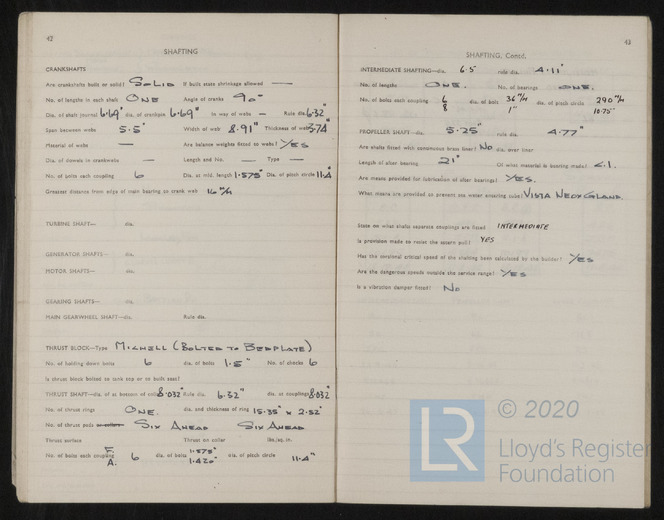 42
SHAFTING
CRANKSHAFTS
Are crankshafts built or solid? SOLID If built state shrinkage allowed —
No. of lengths in each shaft ONE Angle of cranks 90°
Dia. of shaft journal 6.69" dia. of crankpin 6.69" In way of webs — Rule dia. 6.32"
Span between webs 5.5" Width of web 8.91" Thickness of web 3.74"
Material of webs — Are balance weights fitted to webs? YES
Dia. of dowels in crankwebs — Length and No. — Type —
No. of bolts each coupling 6 Dia. at mid. length 1.575" Dia. of pitch circle 11.4"
Greatest distance from edge of main bearing to crank web 16 M/M
TURBINE SHAFT— dia.
GENERATOR SHAFTS— dia.
MOTOR SHAFTS— dia.
GEARING SHAFTS— dia.
MAIN GEARWHEEL SHAFT—dia. Rule dia.
THRUST BLOCK—Type MICHELL (BOLTED TO BEDPLATE)
No. of holding down bolts 6 dia. of bolts 1.5" No. of chocks 6
Is thrust block bolted to tank top or to bolt seat?
THRUST SHAFT—dia. of at bottom of collar 8.032" Rule dia. 6.32" dia. at couplings 8.032"
No. of thrust rings ONE. dia. and thickness of ring 15.35" x 2.52"
No. of thrust pads SIX AHEAD SIX AHEAD
Thrust surface Thrust on collar lbs./sq. in.
No. of bolts each coupling F. A. 6 dia. of bolts 1.575" 1.420" dia. of pitch circle 11.4"
43
SHAFTING, Contd.
INTERMEDIATE SHAFTING—dia. 6.5 rule dia. 4.11"
No. of lengths ONE. No. of bearings ONE.
No. of bolts each coupling 6 8 dia. of bolts 36 M/M 1" dia. of pitch circle 290 M/M 10.75"
PROPELLER SHAFT—dia. 5.25" rule dia. 4.77"
Are shafts fitted with continuous brass liner? NO dia. over liner
Length of after bearing 21" Of what material is bearing made? C.I.
Are means provided for lubrication of after bearings? YES.
What means are provided to prevent sea water entering tube? VISTA NEOX GLAND.
State on what shafts separate couplings are fitted INTERMEDIATE
Is provision made to resist the astern pull? YES
Has the torsional critical speed of the shafting been calculated by the builder? YES
Are the dangerous speeds outside the service range? YES
Is a vibration damper fitted? NO
LR
© 2020
Lloyd's Register
Foundation